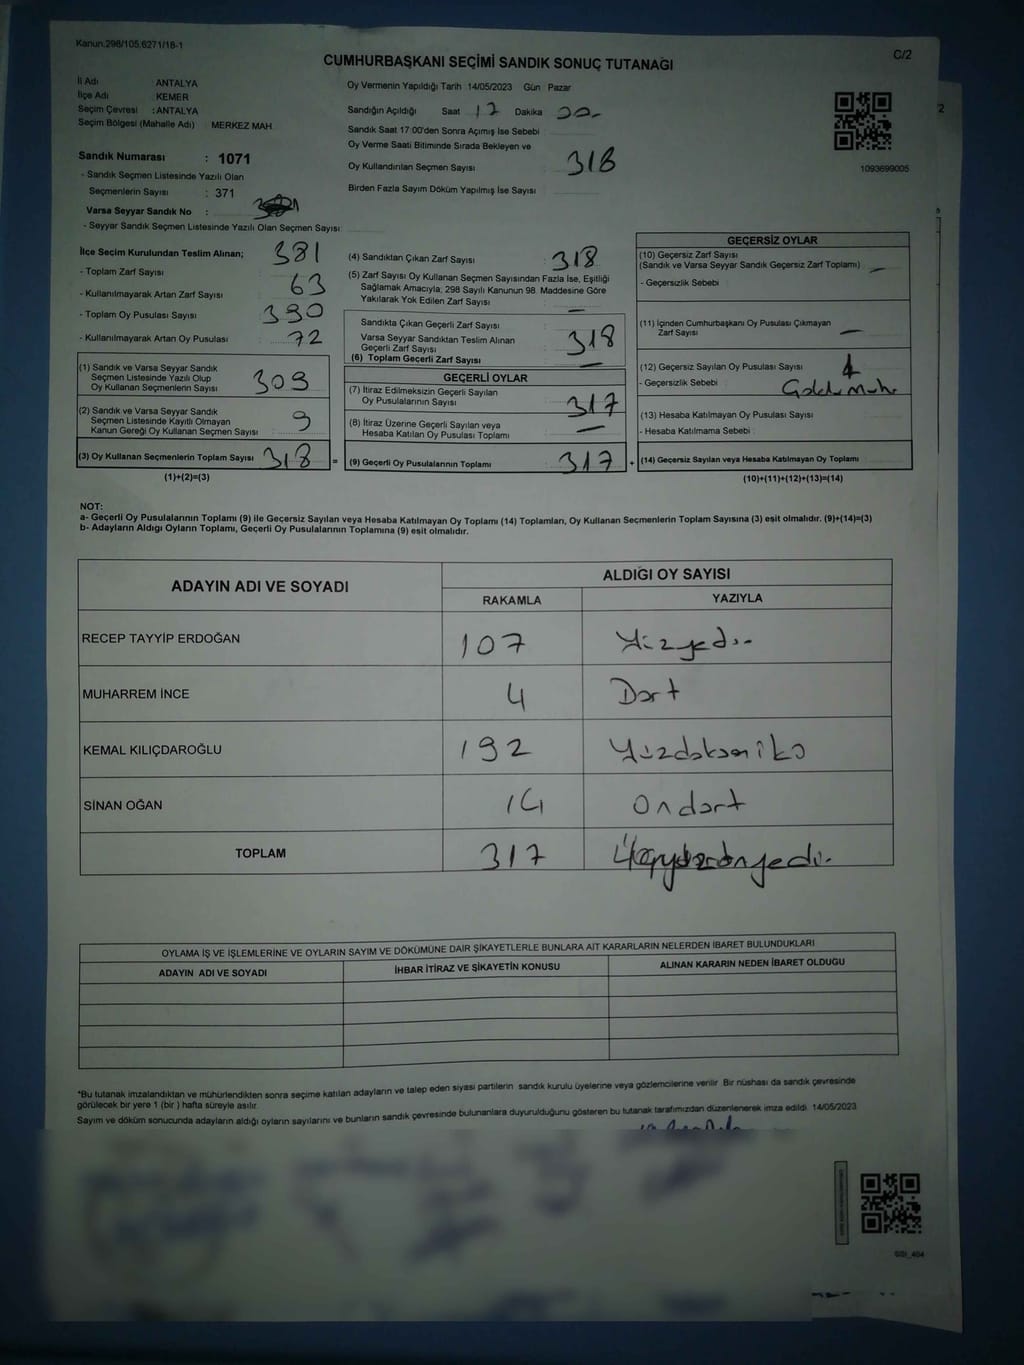 Kanun.298/105.6271/18-1
C/2
CUMHURBAŞKANI SEÇİMİ SANDIK SONUÇ TUTANAĞI
İl Adı ANTALYA
İlçe Adı KEMER
Seçim Çevresi : ANTALYA
Seçim Bölgesi (Mahalle Adı) MERKEZ MAH.
Sandık Numarası : 1071
- Sandık Seçmen Listesinde Yazılı Olan
Seçmenlerin Sayısı : 371
Varsa Seyyar Sandık No :
- Seyyar Sandık Seçmen Listesinde Yazılı Olan Seçmen Sayısı:
Oy Vermenin Yapıldığı Tarih 14/05/2023 Gün Pazar
Sandığın Açıldığı Saat 17 Dakika
Sandık Saat 17:00'den Sonra Açımış İse Sebebi
Oy Verme Saati Bitiminde Sırada Bekleyen ve
Oy Kullandırılan Seçmen Sayısı 318
Birden Fazla Sayım Döküm Yapılmış İse Sayısı
1093699005
2
İlçe Seçim Kurulundan Teslim Alınan; 381
- Toplam Zarf Sayısı
- Kullanılmayarak Artan Zarf Sayısı 63
- Toplam Oy Pusulası Sayısı 390
- Kullanılmayarak Artan Oy Pusulası 72
(1) Sandık ve Varsa Seyyar Sandık
Seçmen Listesinde Yazılı Olup
Oy Kullanan Seçmenlerin Sayısı 309
(2) Sandık ve Varsa Seyyar Sandık
Seçmen Listesinde Kayıtlı Olmayan
Kanun Gereği Oy Kullanan Seçmen Sayısı : 9
(3) Oy Kullanan Seçmenlerin Toplam Sayısı 318 =
(1)+(2)=(3)
(4) Sandıktan Çıkan Zarf Sayısı : 318
(5) Zarf Sayısı Oy Kullanan Seçmen Sayısından Fazla İse, Eşitliği
Sağlamak Amacıyla; 298 Sayılı Kanunun 98. Maddesine Göre
Yakılarak Yok Edilen Zarf Sayısı : —
Sandıkta Çıkan Geçerli Zarf Sayısı : 318
Varsa Seyyar Sandıktan Teslim Alınan
Geçerli Zarf Sayısı
(6) Toplam Geçerli Zarf Sayısı —
GEÇERLİ OYLAR
(7) İtiraz Edilmeksizin Geçerli Sayılan
Oy Pusulalarının Sayısı : 317
(8) İtiraz Üzerine Geçerli Sayılan veya
Hesaba Katılan Oy Pusulası Toplamı : —
(9) Geçerli Oy Pusulalarının Toplamı : 317 +
GEÇERSİZ OYLAR
(10) Geçersiz Zarf Sayısı
(Sandık ve Varsa Seyyar Sandık Geçersiz Zarf Toplamı) : —
- Geçersizlik Sebebi :
(11) İçinden Cumhurbaşkanı Oy Pusulası Çıkmayan
Zarf Sayısı —
(12) Geçersiz Sayılan Oy Pusulası Sayısı : 1
- Geçersizlik Sebebi :
(13) Hesaba Katılmayan Oy Pusulası Sayısı
- Hesaba Katılmama Sebebi :
(14) Geçersiz Sayılan veya Hesaba Katılmayan Oy Toplamı
(10)+(11)+(12)+(13)=(14)
NOT:
a- Geçerli Oy Pusulalarının Toplamı (9) ile Geçersiz Sayılan veya Hesaba Katılmayan Oy Toplamı (14) Toplamları, Oy Kullanan Seçmenlerin Toplam Sayısına (3) eşit olmalıdır. (9)+(14)=(3)
b- Adayların Aldığı Oyların Toplamı, Geçerli Oy Pusulalarının Toplamına (9) eşit olmalıdır.
ADAYIN ADI VE SOYADI
ALDIĞI OY SAYISI
RAKAMLA YAZIYLA
RECEP TAYYİP ERDOĞAN 107 Yüzyedi
MUHARREM İNCE 4 Dört
KEMAL KILIÇDAROĞLU 192 Yüzdoksaniki
SİNAN OĞAN 14 Ondört
TOPLAM 317 Üçyüzonyedi
OYLAMA İŞ VE İŞLEMLERİNE VE OYLARIN SAYIM VE DÖKÜMÜNE DAİR ŞİKAYETLERLE BUNLARA AİT KARARLARIN NELERDEN İBARET BULUNDUKLARI
ADAYIN ADI VE SOYADI İHBAR İTİRAZ VE ŞİKAYETİN KONUSU ALINAN KARARIN NEDEN İBARET OLDUĞU
*Bu tutanak imzalandıktan ve mühürlendikten sonra seçime katılan adayların ve talep eden siyasi partilerin sandık kurulu üyelerine veya gözlemcilerine verilir. Bir nüshası da sandık çevresinde
görülecek bir yere 1 (bir ) hafta süreyle asılır.
Sayım ve döküm sonucunda adayların aldığı oyların sayılarını ve bunların sandık çevresinde bulunanlara duyurulduğunu gösteren bu tutanak tarafımızdan düzenlenerek imza edildi. 14/05/2023
GSI_404